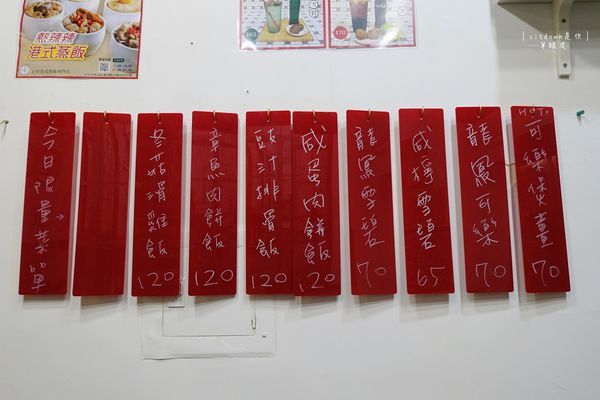 熱辣辣
港式蒸飯
$65
$70
| sitdown是但 |
一單眼皮
今日限量菜單→
冬菇滑雞飯 120
章魚肉餅飯 120
豉汁排骨飯 120
咸蛋肉餅飯 120
龍鳳雪碧 70
咸檸雪碧 65
龍鳳可樂 70
HOT 可樂煲薑 70